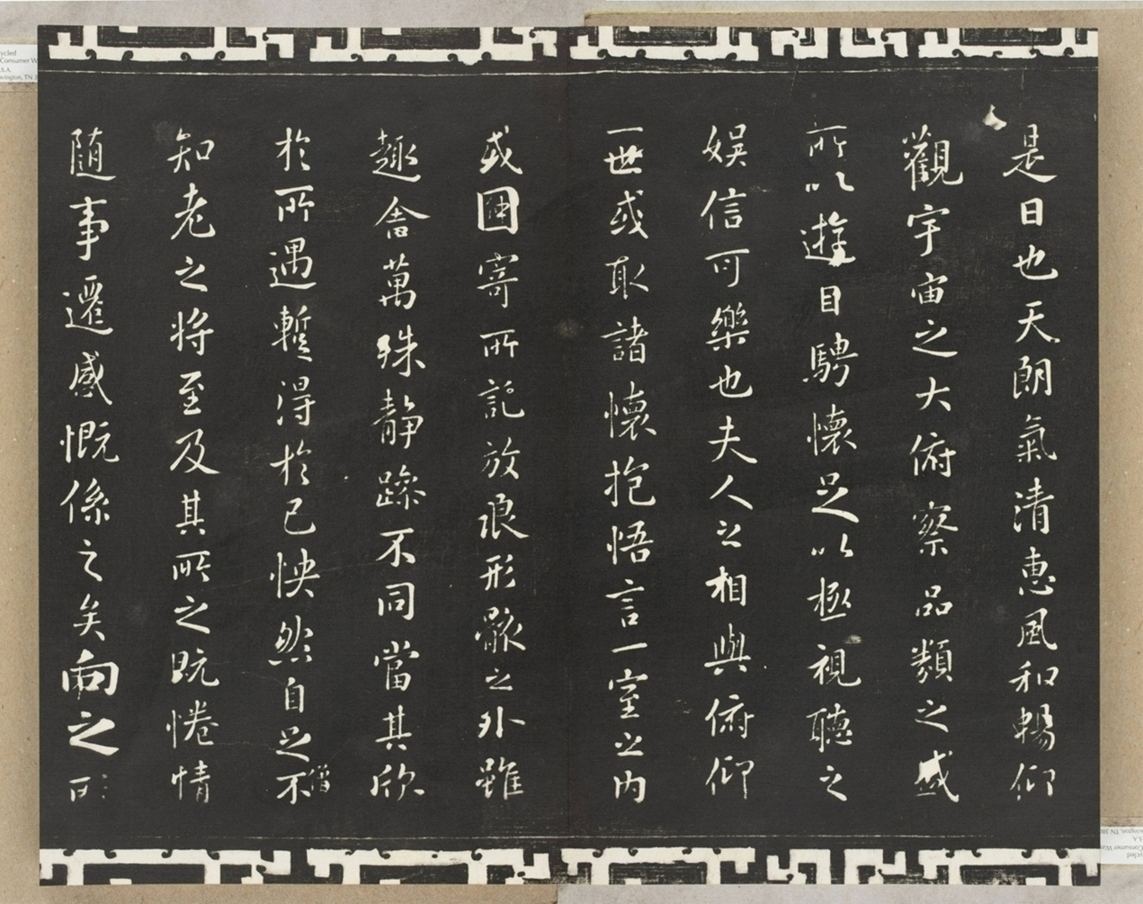 是日也天朗氣清惠風和暢仰
觀宇宙之大俯察品類之盛
所以遊目騁懷足以極視聽之
娛信可樂也夫人之相與俯仰
一世或取諸懷抱悟言一室之內
或因寄所託放浪形骸之外雖
趣舍萬殊靜躁不同當其欣
於所遇暫得於己怏然自足不
僧
知老之將至及其所之既惓情
隨事遷感慨係之矣向之所
ycled
Consumer W
S.A.